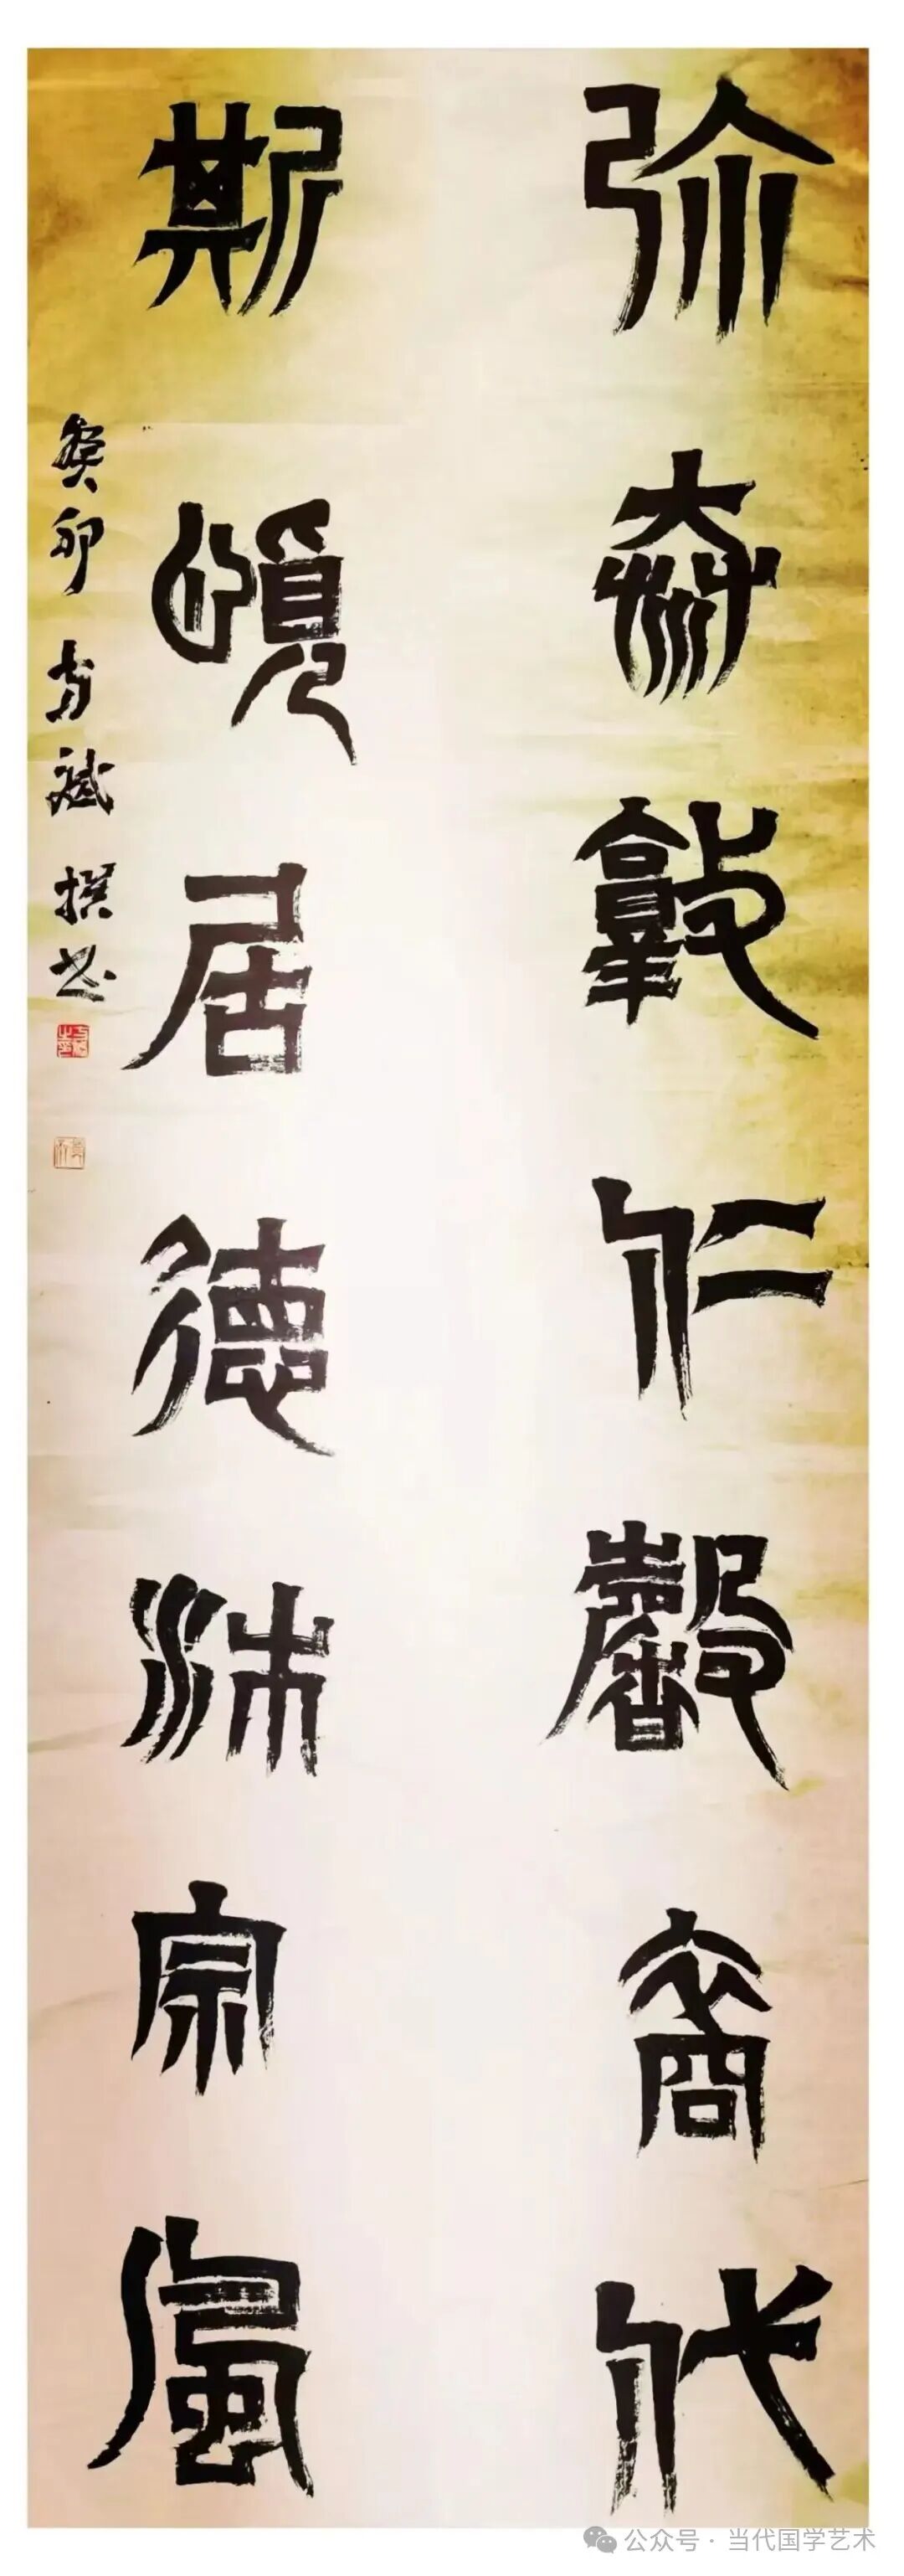 弥敦仁馨裔代
斯居德沛宗風
癸卯方斌撰书
公众号 · 当代国学艺术